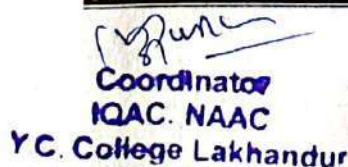 Coordinator
IQAC. NAAC
Y C. College Lakhandur